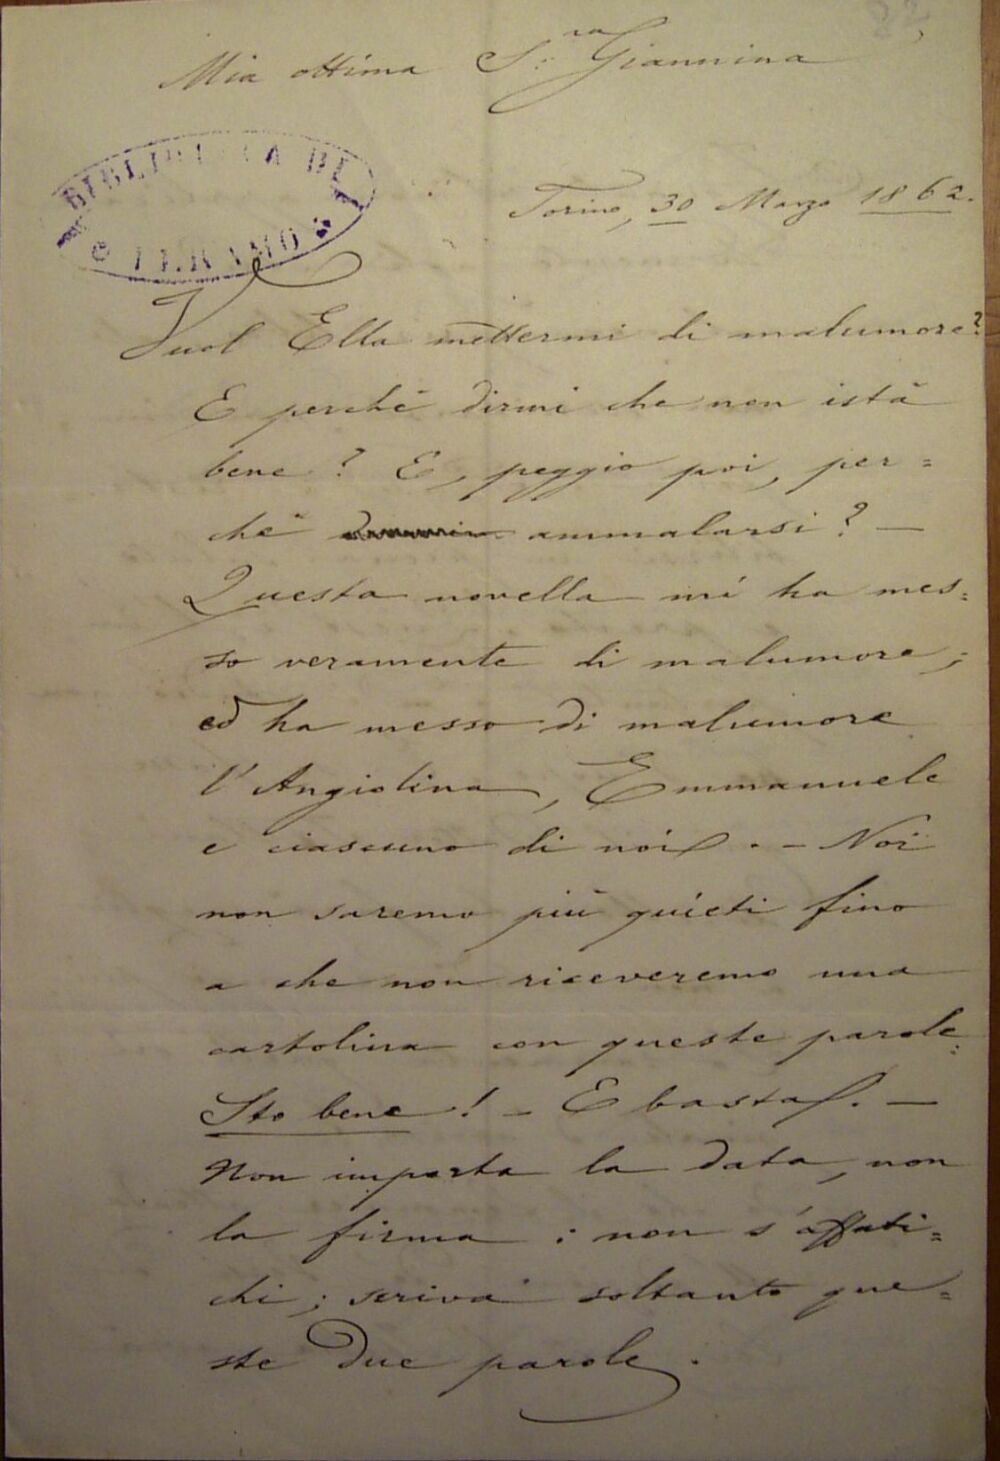 Mia ottima S.ra Giannina
BIBLIOTECA DI
TERAMO
Torino, 30 Marzo 1862.
Vuol Ella mettermi di malumore?
E perchè dirmi che non istà
bene? E, peggio poi, per=
chè ammalarsi? —
Questa novella mi ha mes=
so veramente di malumore;
ed ha messo di malumore
l'Angiolina, Emmanuele
e ciascuno di noi. — Noi
non saremo più quieti fino
a che non riceveremo una
cartolina con queste parole:
Sto bene! — E basta. —
Non importa la data, non
la firma: non s'affati=
chi; scriva soltanto que=
ste due parole.